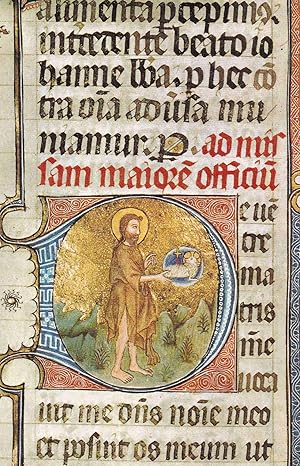 alimenta p̄cepim⁹.
intercedente beato io
hanne bb̄a. p hec cō
tra oīa adūsa mu
niamur. P. ad mis
sam maiorē officiū
De uē
tre
ma
tris
mē
uoca
uit me dn̄s noīe meo
et posuit os meum ut